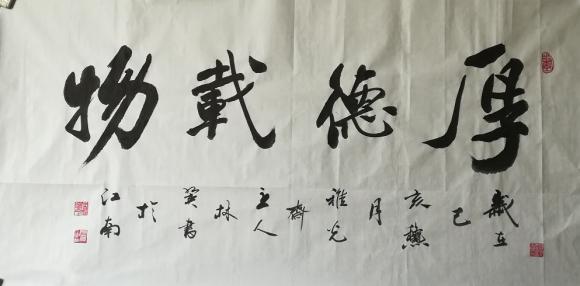 厚德載物
歲在己亥穐月雅光齋主人林書於江南